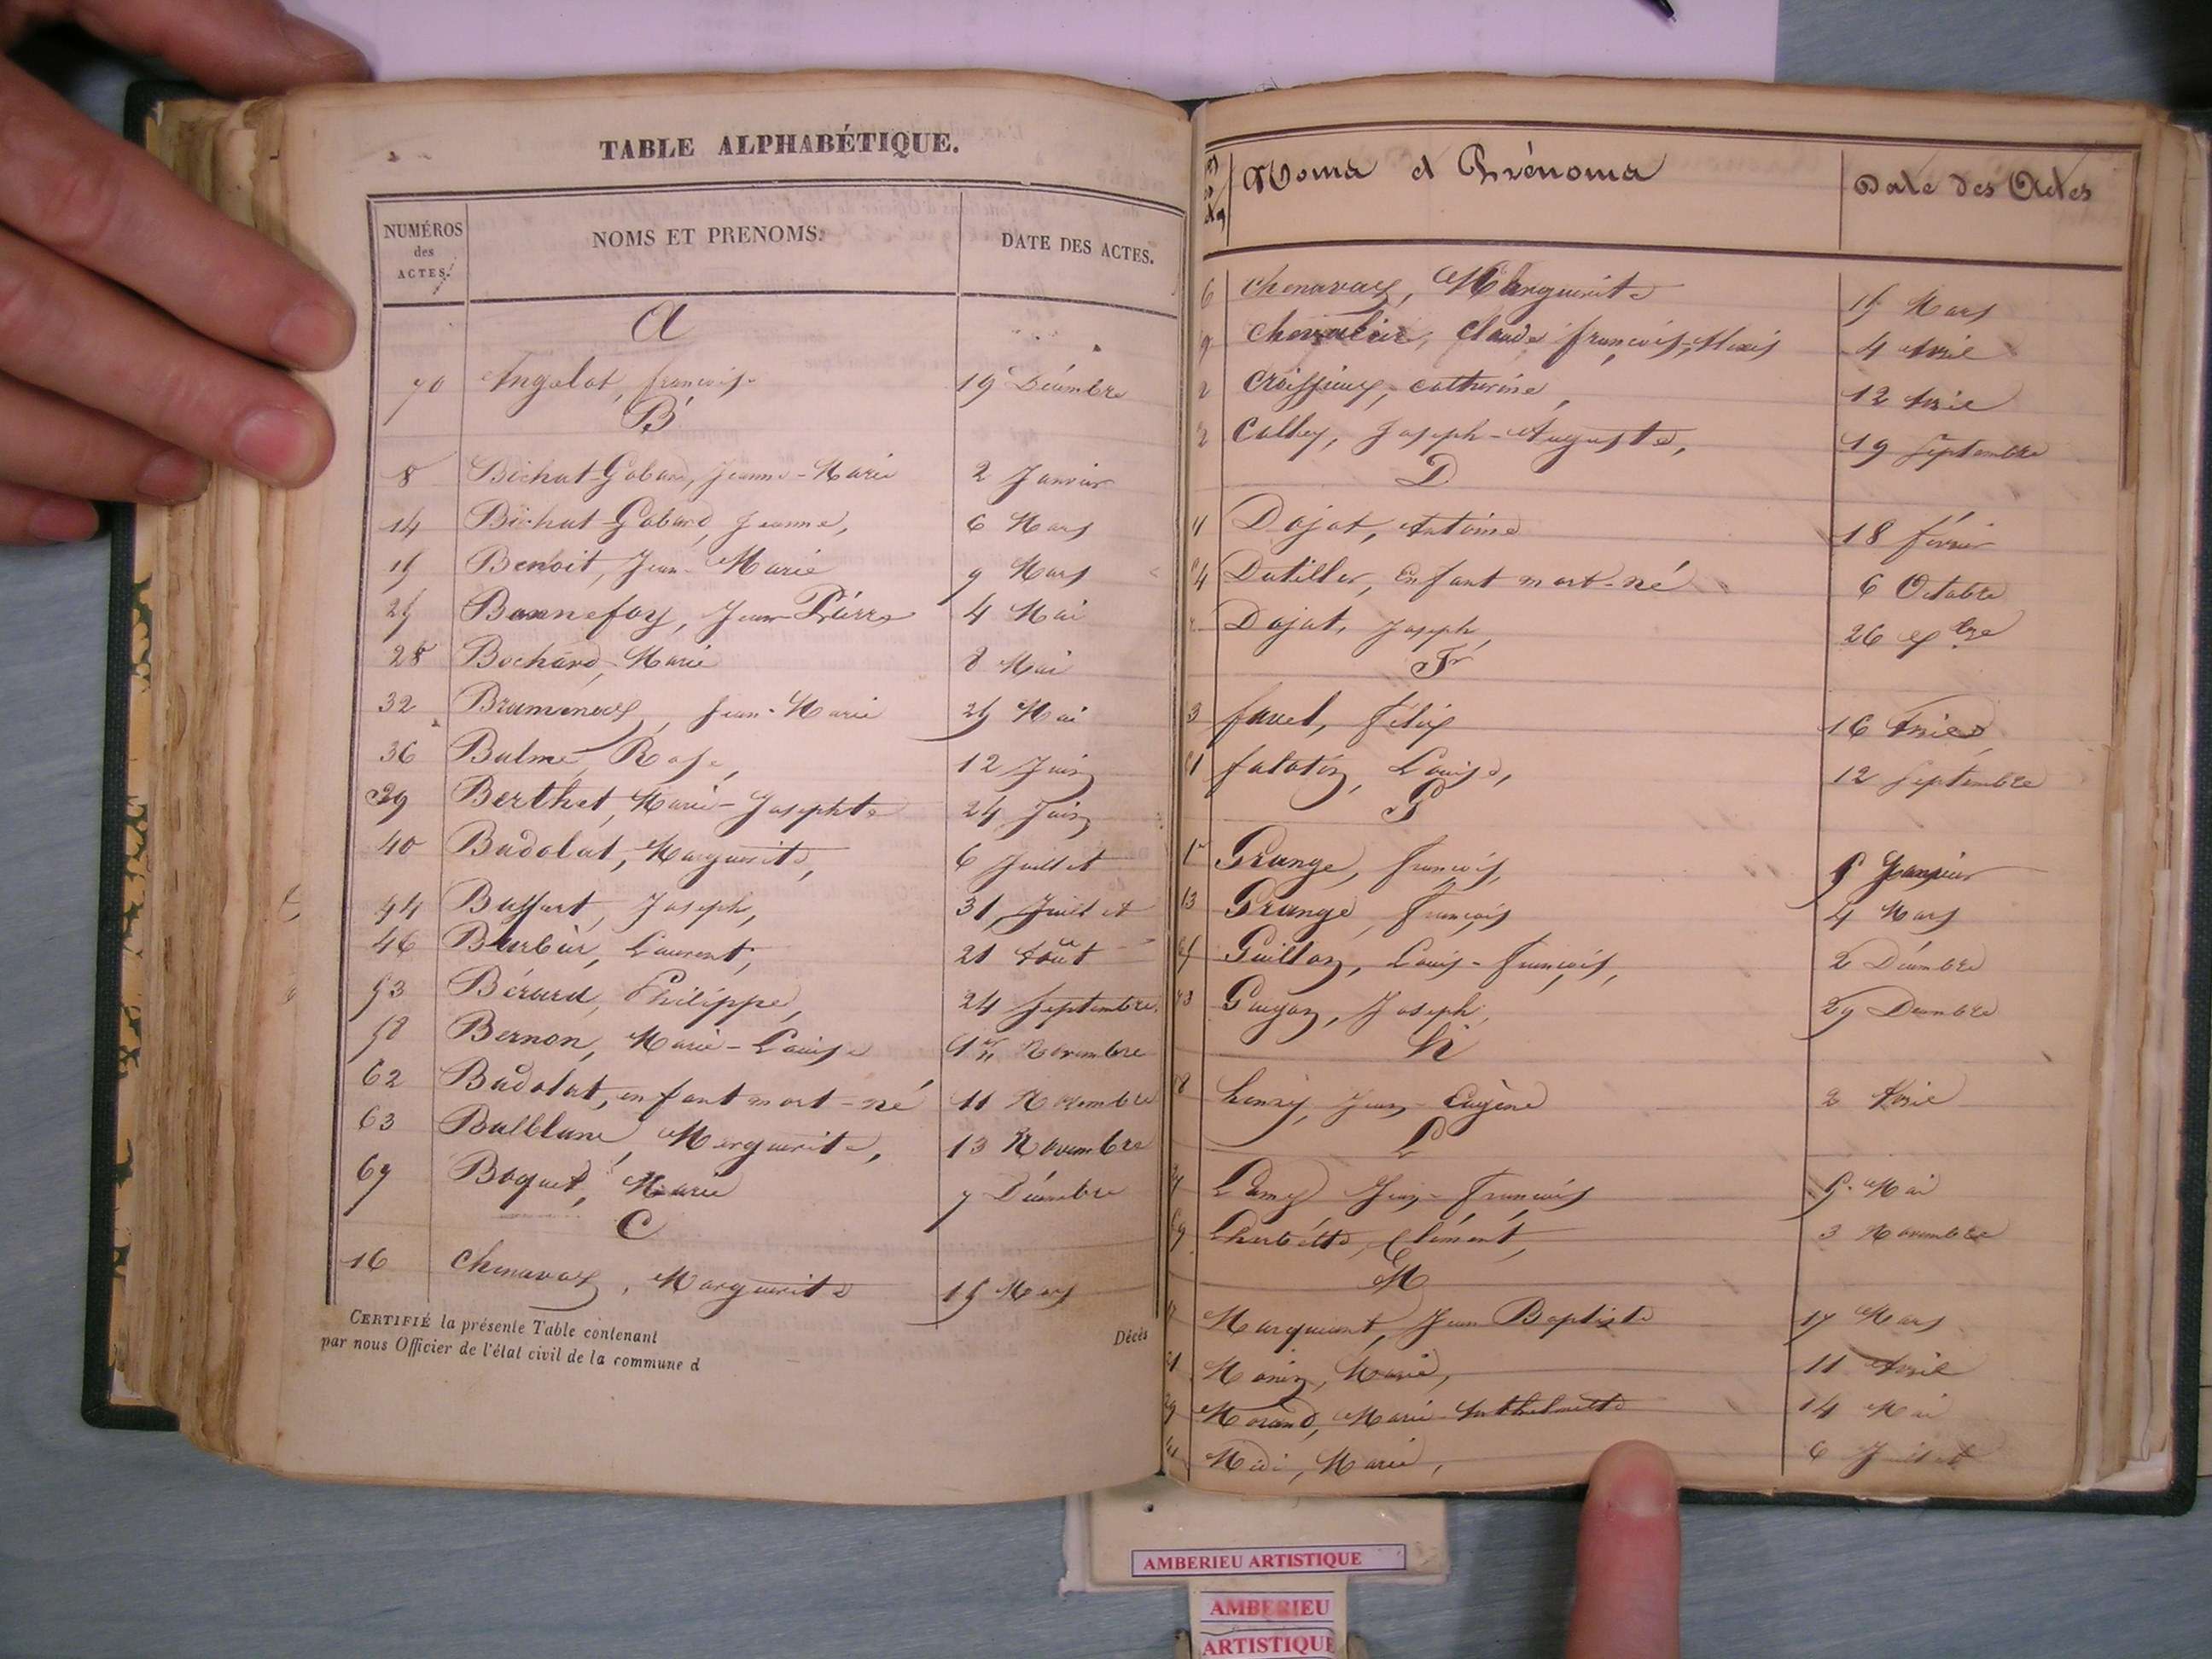 TABLE ALPHABÉTIQUE.
NUMÉROS des ACTES. NOMS ET PRENOMS. DATE DES ACTES.
A
70 Angelot, françois 19 Décembre
B
8 Bichat-Gobard, Jeanne-Marie 2 Janvier
14 Bichat-Gobard, Jeanne, 6 Mars
15 Benoit, Jean-Marie 9 Mars
25 Bonnefoy, Jean-Pierre 4 Mai
28 Bochard, Marie 8 Mai
32 Jean-Marie 25 Mai
36 Balme, Rose, 12 Juin
39 Berthet, Marie-Josephte 24 Juin
40 Badolat, Marguerite, 6 Juillet
44 Buffart, Joseph, 31 Juillet
46 Barbier, Laurent, 21 Août
53 Bérard, Philippe, 24 Septembre
58 Bernon, Marie-Louise 1er Novembre
62 Badolat, enfant mort-né 11 Novembre
63 Balblanc, Marguerite, 13 Novembre
67 Boquet, Marie 7 Décembre
C
16 Chenavaz, Marguerite 15 Mars
CERTIFIÉ la présente Table contenant Décès
par nous Officier de l'état civil de la commune d
Noms et Prénoms Date des Actes
6 Chenavaz, Marguerite 15 Mars
9 Chevalier, Claude françois-Alexis 4 Avril
2 Croissieux, Catherine, 12 Avril
2 Joseph-Auguste, 19 Septembre
D
11 Dojat, Antoine 18 février
4 Dutiller, Enfant mort-né 6 Octobre
Dojat, Joseph, 26 bre
F
3 favel, félix 16 Avril
51 falatin, Louise, 12 Septembre
G
1r Grange, françois, 5 Janvier
13 Grange, françois 4 Mars
Guillon, Louis-françois, 2 Décembre
73 Guyon, Joseph, 29 Décembre
h
18 henry, Jean-Eugène 2 Avril
L
Lamy Jean-François 5 Mai
59 Lharbette, Clément, 3 Novembre
M
17 Marquient, Jean Baptiste 17 Mars
21 Monin, Marie, 11 Avril
29 Morand, Marie-Anthelmette 14 Mai
41 Midi, Marie, 6 Juillet
AMBERIEU ARTISTIQUE
AMBERIEU
ARTISTIQUE